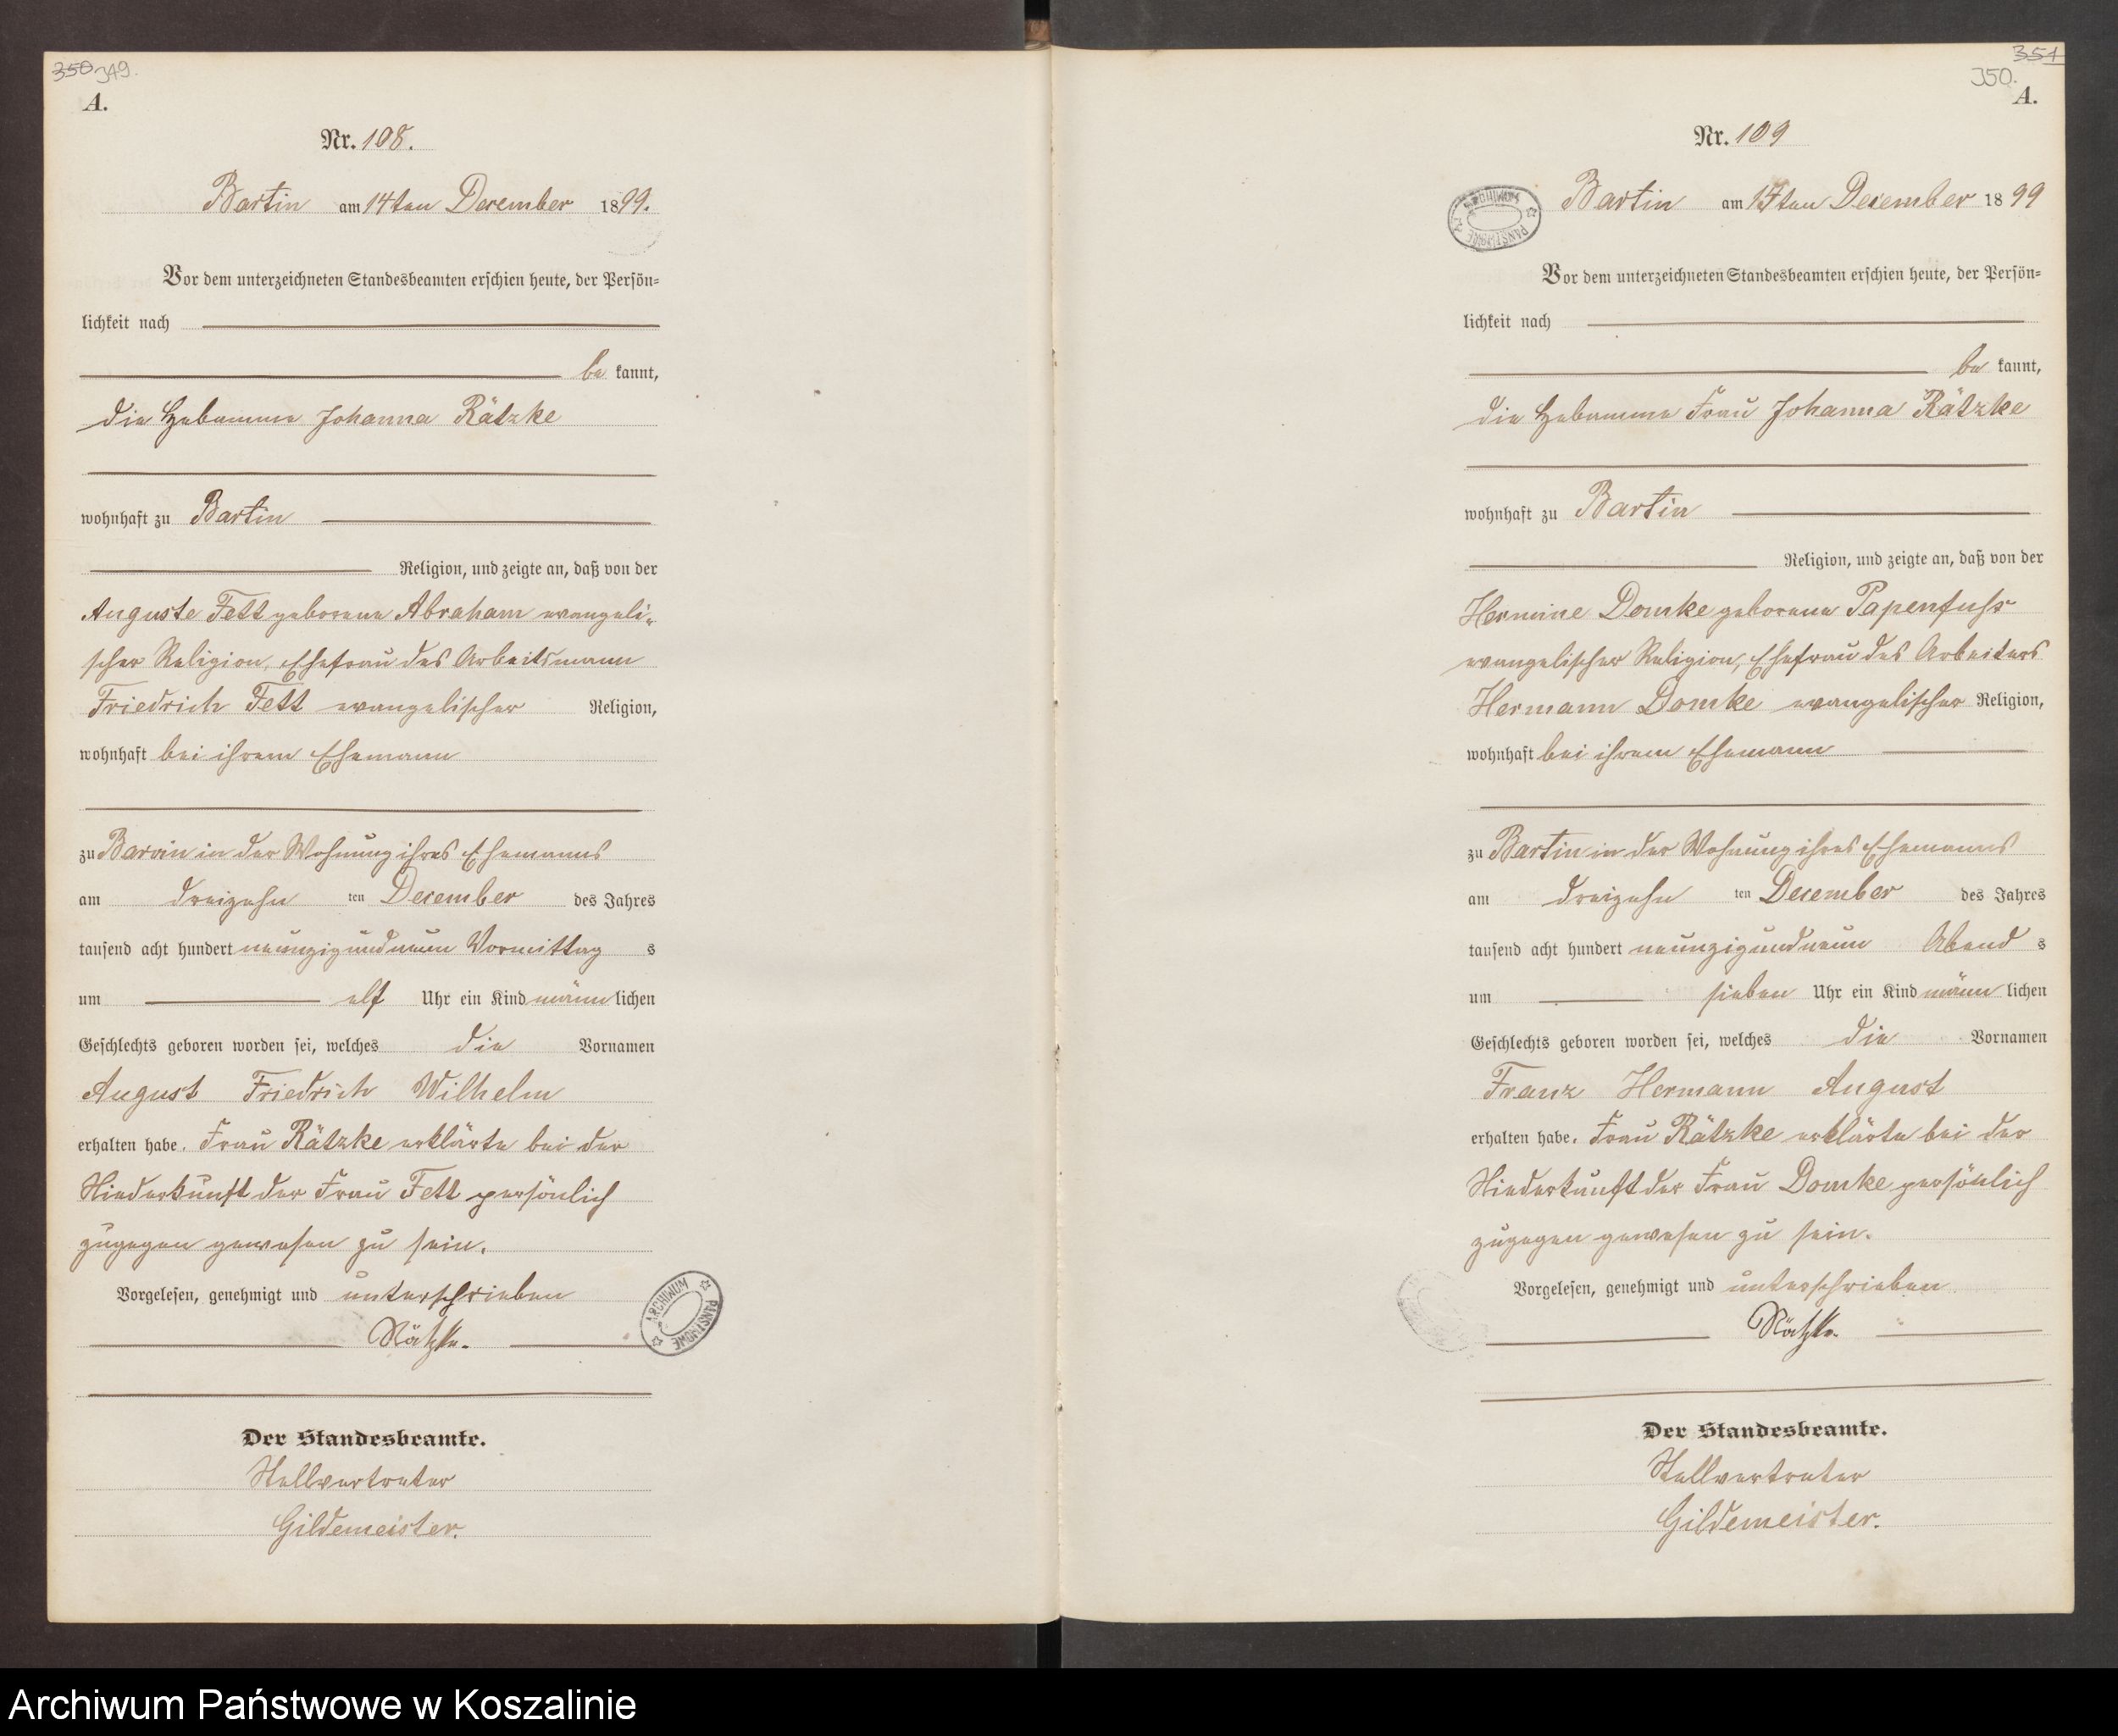 350 349.
A.
Nr. 108.
Bartin am 14ten December 1899.
Vor dem unterzeichneten Standesbeamten erschien heute, der Persön-
lichkeit nach
be kannt,
die Hebamme Johanna Rätzke
wohnhaft zu Bartin
Religion, und zeigte an, daß von der
Auguste Fett geborene Abraham evangeli-
scher Religion, Ehefrau des Arbeitsmann
Friedrich Fett evangelischer Religion,
wohnhaft bei ihrem Ehemann
zu Barvin in der Wohnung ihres Ehemanns
am dreizehn ten December des Jahres
tausend acht hundert neunzigundneun Vormittag s
um elf Uhr ein Kind männ lichen
Geschlechts geboren worden sei, welches die Vornamen
August Friedrich Wilhelm
erhalten habe. Frau Rätzke erklärte bei der
Niederkunft der Frau Fett persönlich
zugegen gewesen zu sein.
Vorgelesen, genehmigt und unterschrieben
Rätzke.
ARCHIWUM PAŃSTWOWE
Der Standesbeamte.
Stellvertreter
Gildemeister.
351
350.
A.
Nr. 109
ARCHIWUM PAŃSTWOWE
Bartin am 17ten December 1899
Vor dem unterzeichneten Standesbeamten erschien heute, der Persön-
lichkeit nach
be kannt,
die Hebamme Frau Johanna Rätzke
wohnhaft zu Bartin
Religion, und zeigte an, daß von der
Hermine Domke geborene Papenfuss
evangelischer Religion, Ehefrau des Arbeiters
Hermann Domke evangelischer Religion,
wohnhaft bei ihrem Ehemann
zu Bartin in der Wohnung ihres Ehemanns
am dreizehn ten December des Jahres
tausend acht hundert neunzigundneun Abend s
um sieben Uhr ein Kind männ lichen
Geschlechts geboren worden sei, welches die Vornamen
Franz Hermann August
erhalten habe. Frau Rätzke erklärte bei der
Niederkunft der Frau Domke persönlich
zugegen gewesen zu sein.
Vorgelesen, genehmigt und unterschrieben
Rätzke.
Der Standesbeamte.
Stellvertreter
Gildemeister.
Archiwum Państwowe w Koszalinie